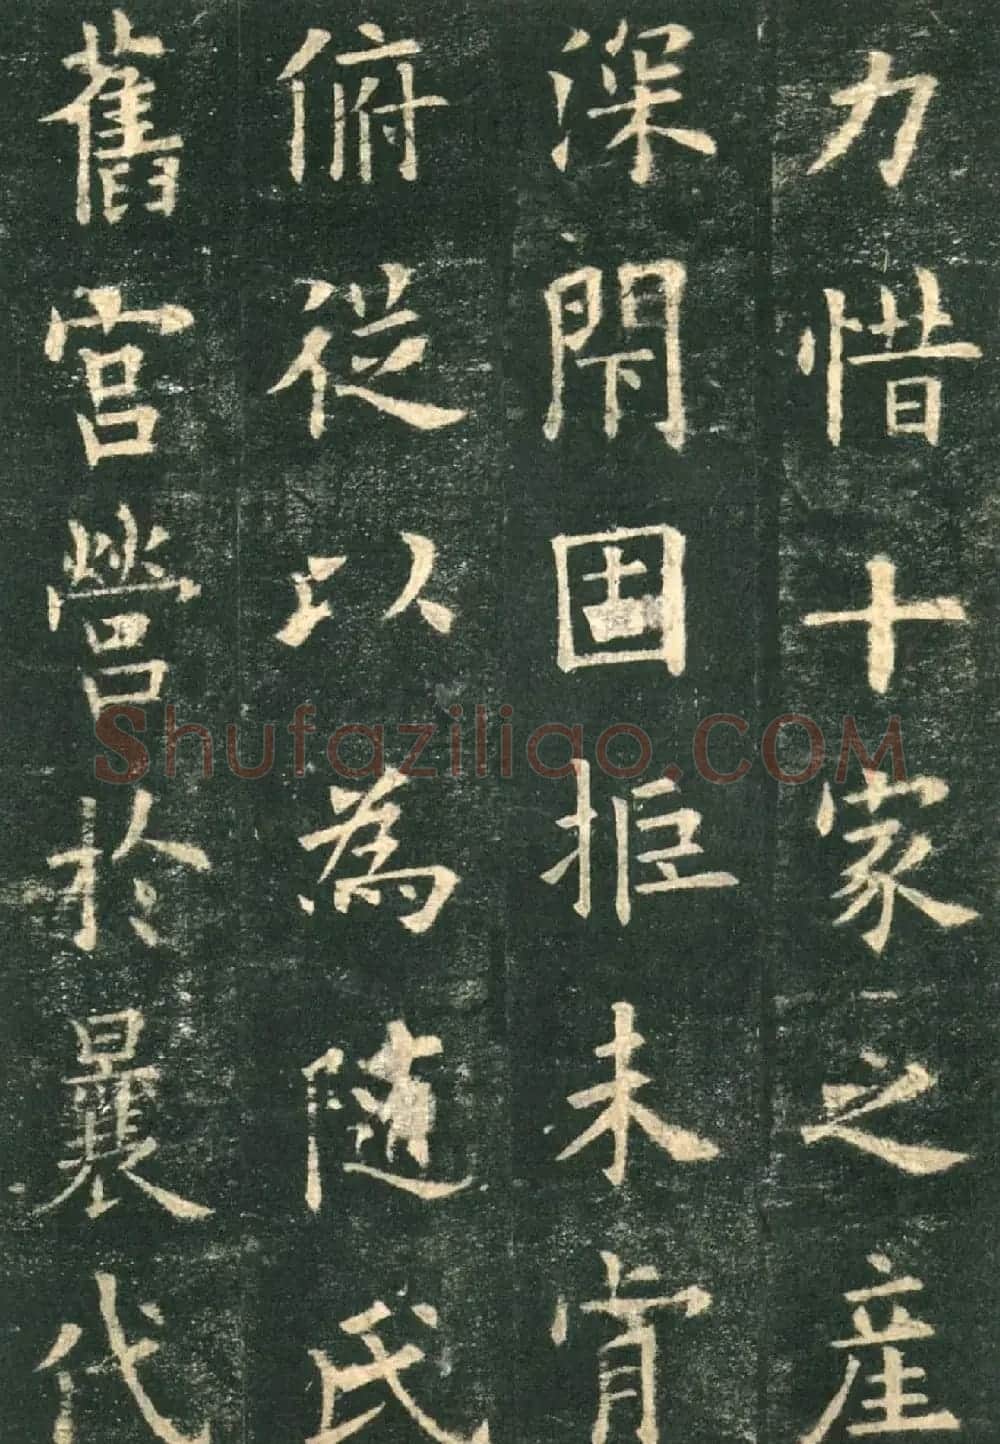 力惜十家之産
深閇固拒未肯
俯從以為随氏
舊宮營於曩代
Shufaziliao.COM